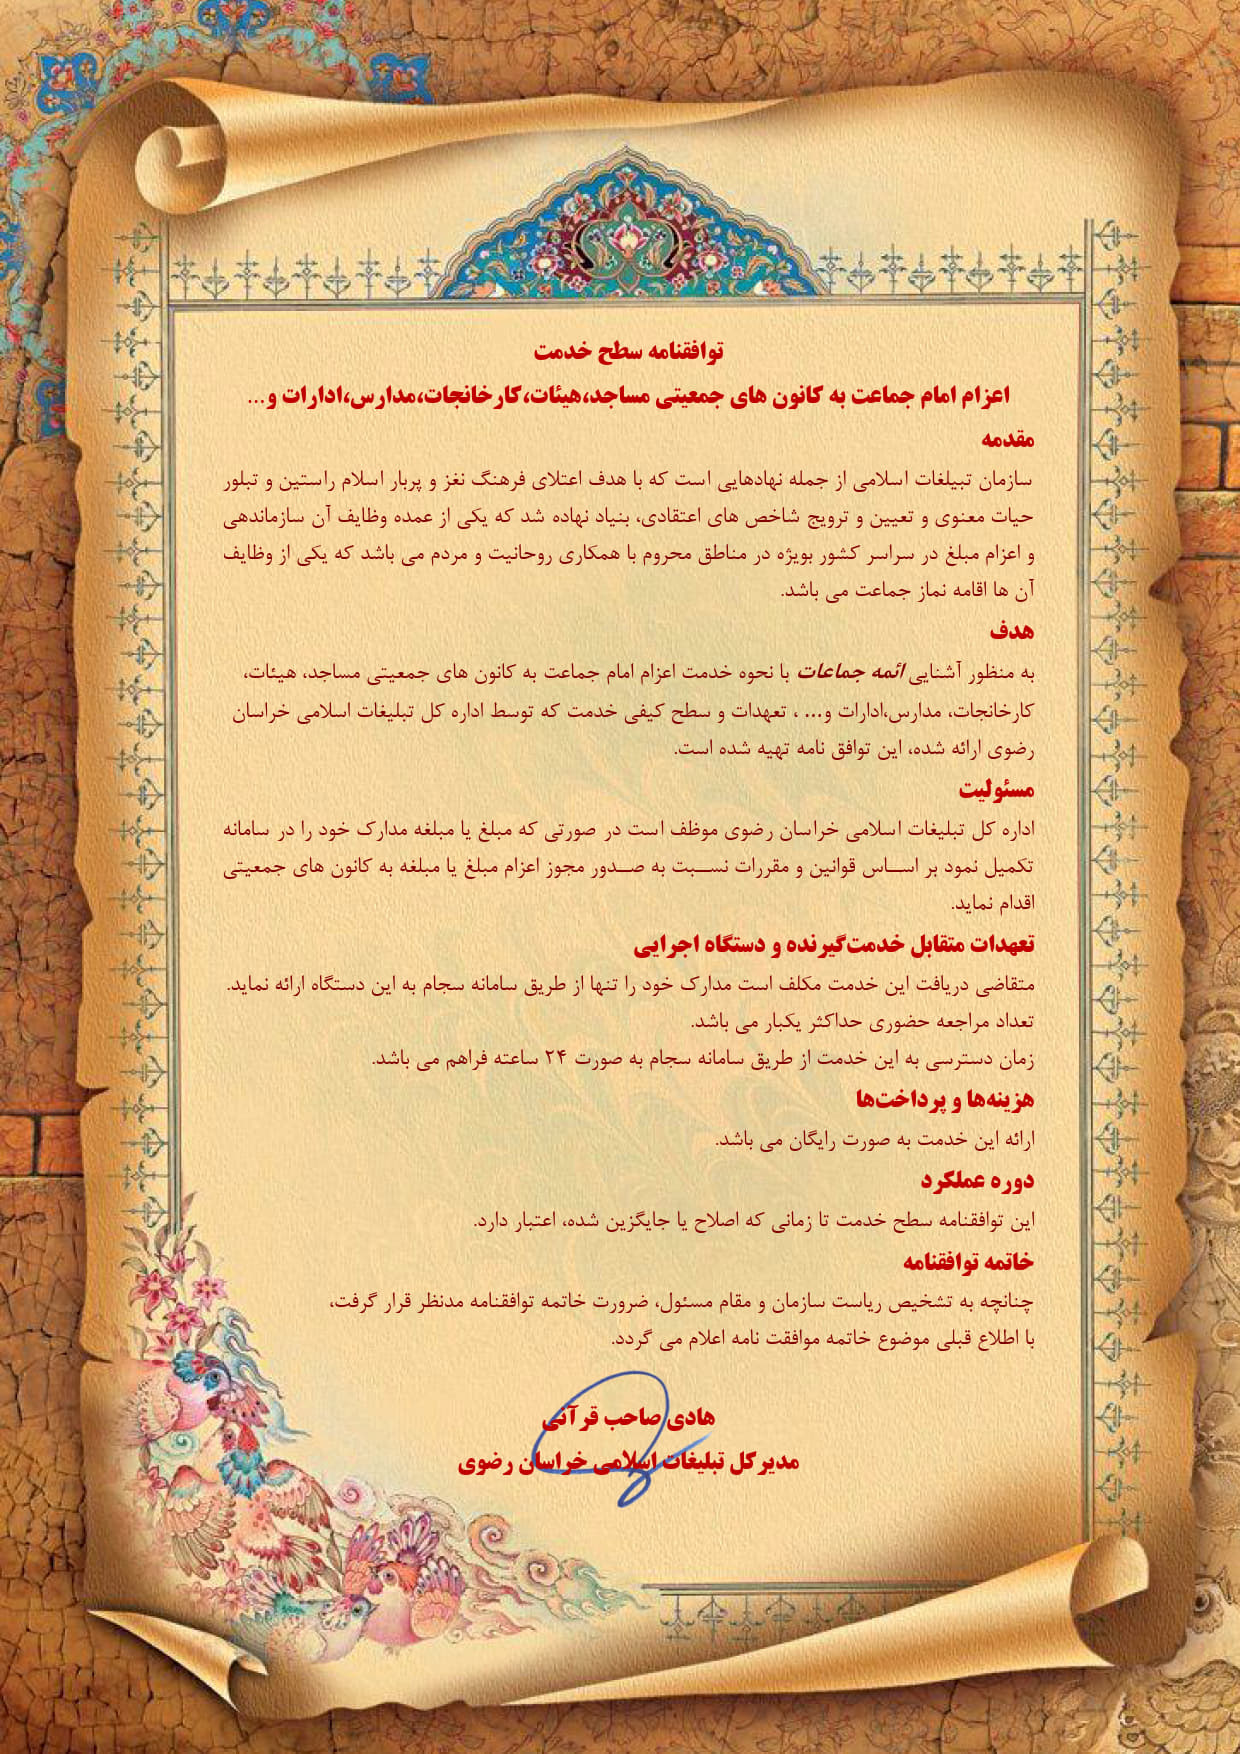 توافقنامه سطح خدمت
اعزام امام جماعت به کانون های جمعیتی مساجد،هیئات،کارخانجات،مدارس،ادارات و...
مقدمه
سازمان تبیلغات اسلامی از جمله نهادهایی است که با هدف اعتلای فرهنگ نغز و پربار اسلام راستین و تبلور
حیات معنوی و تعیین و ترویج شاخص های اعتقادی، بنیاد نهاده شد که یکی از عمده وظایف آن سازماندهی
و اعزام مبلغ در سراسر کشور بویژه در مناطق محروم با همکاری روحانیت و مردم می باشد که یکی از وظایف
آن ها اقامه نماز جماعت می باشد.
هدف
به منظور آشنایی ائمه جماعات با نحوه خدمت اعزام امام جماعت به کانون های جمعیتی مساجد، هیئات،
کارخانجات، مدارس،ادارات و... ، تعهدات و سطح کیفی خدمت که توسط اداره کل تبلیغات اسلامی خراسان
رضوی ارائه شده، این توافق نامه تهیه شده است.
مسئولیت
اداره کل تبلیغات اسلامی خراسان رضوی موظف است در صورتی که مبلغ یا مبلغه مدارک خود را در سامانه
تکمیل نمود بر اســاس قوانین و مقررات نســبت به صــدور مجوز اعزام مبلغ یا مبلغه به کانون های جمعیتی
اقدام نماید.
تعهدات متقابل خدمت‌گیرنده و دستگاه اجرایی
متقاضی دریافت این خدمت مکلف است مدارک خود را تنها از طریق سامانه سجام به این دستگاه ارائه نماید.
تعداد مراجعه حضوری حداکثر یکبار می باشد.
زمان دسترسی به این خدمت از طریق سامانه سجام به صورت ۲۴ ساعته فراهم می باشد.
هزینه‌ها و پرداخت‌ها
ارائه این خدمت به صورت رایگان می باشد.
دوره عملکرد
این توافقنامه سطح خدمت تا زمانی که اصلاح یا جایگزین شده، اعتبار دارد.
خاتمه توافقنامه
چنانچه به تشخیص ریاست سازمان و مقام مسئول، ضرورت خاتمه توافقنامه مدنظر قرار گرفت،
با اطلاع قبلی موضوع خاتمه موافقت نامه اعلام می گردد.
هادی صاحب قرآنی
مدیرکل تبلیغات اسلامی خراسان رضوی